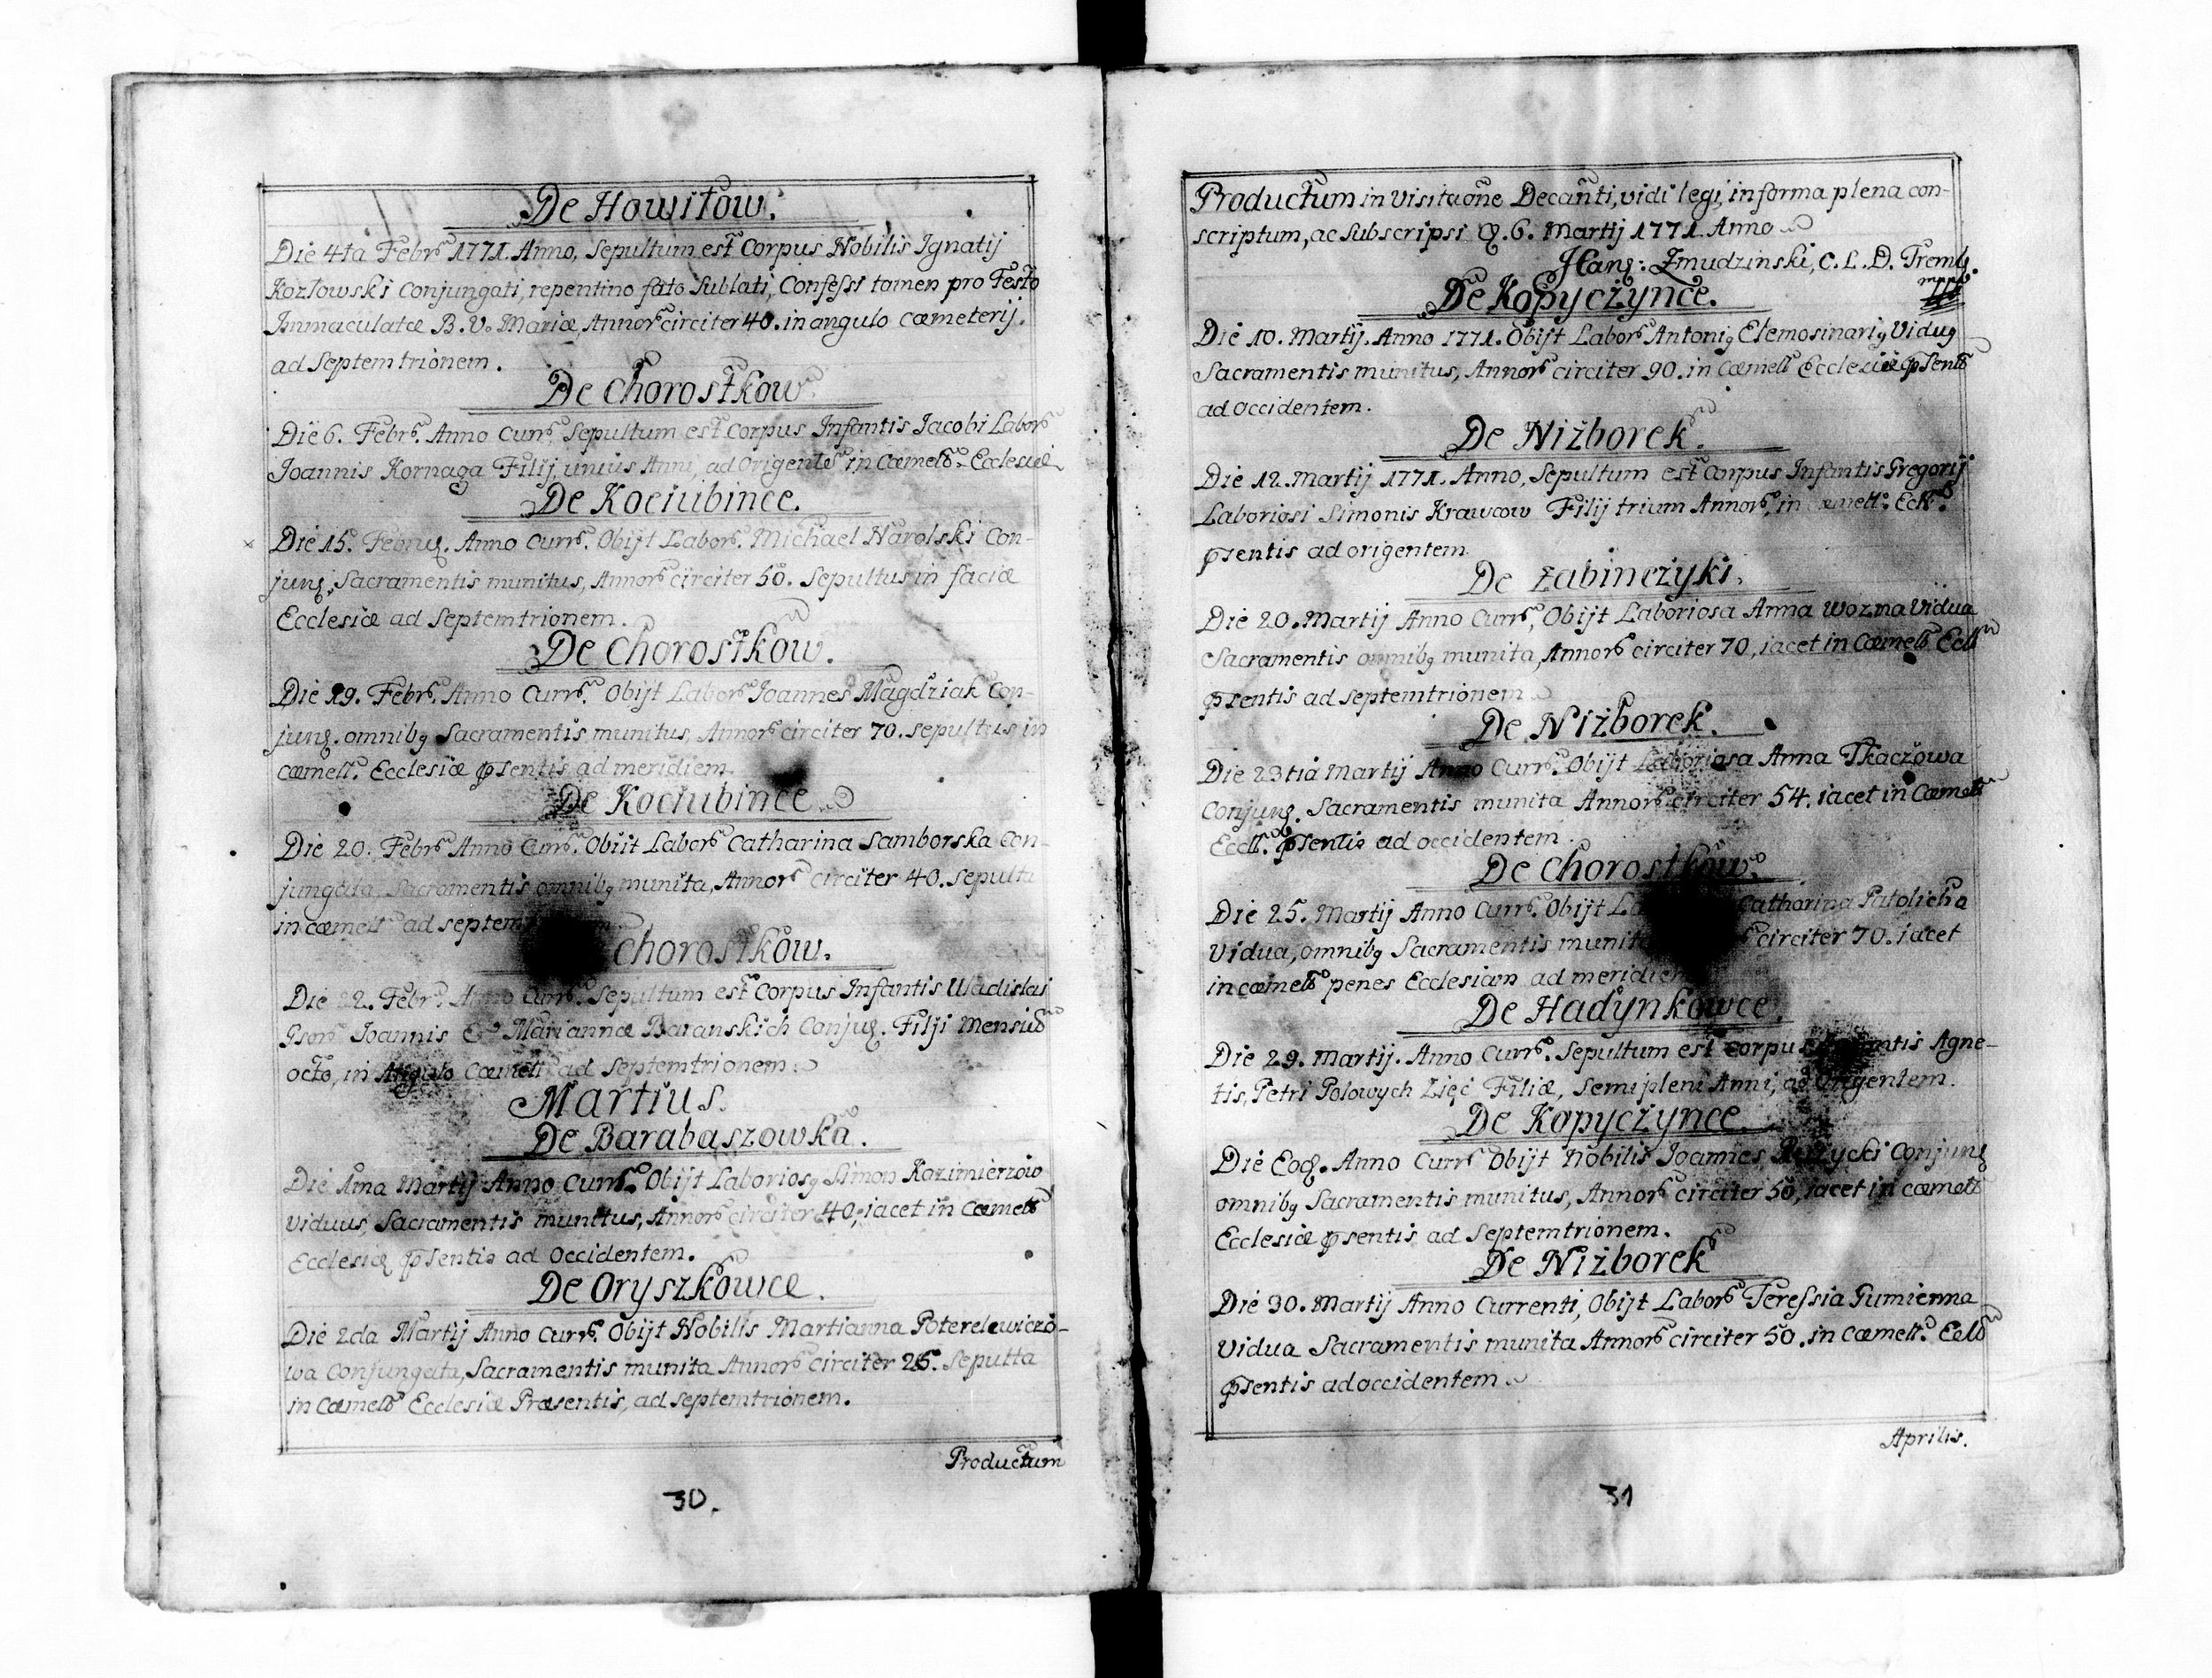 De Howiłow.
Die 4ta Febr. 1771. Anno, Sepultum est Corpus Nobilis Ignatij
Kozłowski Conjungati, repentino fato Sublati, Confessi tamen pro Festo
Immaculatæ B. V. Mariæ, Annor circiter 40. in angulo cæmeterij.
ad Septemtrionem.
De Chorostkow
Die 6. Febr. Anno Curr. Sepultum est Corpus Infantis Jacobi Labor
Joannis Kornaga Filij unius Anni, ad Origente in Cæmet. Ecclesiæ
De Kociubince.
Die 15. Februa. Anno Curr. Obijt Labor. Michael Harolski Con-
jung. Sacramentis munitus, Annor circiter 50. Sepultus in faciæ
Ecclesiæ ad Septemtrionem.
De Chorostkow.
Die 19. Febr. Anno Curr. Obijt Labor Joannes Magdziak Con-
jung. omnibq Sacramentis munitus, Annor circiter 70. sepultus in
cæmett. Ecclesiæ psentis ad meridiem.
De Kociubince
Die 20. Febr. Anno Curr. Obiit Labor Catharina Samborska Con-
jungata, Sacramentis omnibq munita, Annor circiter 40. Sepulta
in cæmett ad septem
Chorostkow.
Die 22. Febr. Anno Curr. Sepultum est Corpus Infantis Wladislai
Gsor Joannis & Mariannæ Baranskich Conjug. Filji Mensiu
octo, in Angulo Cæmett ad Septemtrionem.
Martius.
De Barabaszowka.
Die 1ma Martij Anno Curr. Obijt Laboriosq Simon Kazimierzow
Viduus, Sacramentis munitus, Annor circiter 40, iacet in Cæmett
Ecclesiæ psentis ad Occidentem.
De Oryszkowce.
Die 2da Martij Anno Curr. Obijt Nobilis Martianna Poterelewiczo-
wa Conjungata, Sacramentis munita Annor circiter 26. Sepulta
in Cæmett Ecclesiæ Præsentis, ad septemtrionem.
Productum
30.
Productum in Visitaone Decanti, vidi legi, in forma plena con-
scriptum, ac subscripsi. 6. Martij 1771. Anno
Żmudzinski, C. L. D. Tremb.
mppa
De Kopyczynce.
Die 10. Martij. Anno 1771. Obijt Labor Antoniq Elemosinariq Viduq
Sacramentis munitus, Annor circiter 90. in Cæmett Ecclesiæ psent
ad Occidentem.
De Niżborek.
Die 12. Martij 1771. Anno, Sepultum est Corpus Infantis Gregorij
Laboriosi Simonis Krawcow Filij trium Annor, in cæmett. Eccl.
psentis ad origentem
De Żabinczyki.
Die 20. Martij Anno Curr, Obijt Laboriosa Anna Wozna Vidua
Sacramentis omnibq munita, Annor circiter 70, iacet in Cæmett Eccl
psentis ad septemtrionem
De Niżborek.
Die 23tia Martij Anno Curr. Obijt Laboriosa Anna Tkaczowa
Conjung. Sacramentis munita Annor circiter 54. iacet in Cæmett
Eccl. psentis ad occidentem.
De Chorostkow.
Die 25. Martij Anno Curr. Obijt Catharina
Vidua, omnibq Sacramentis munita circiter 70. iacet
in cæmett penes Ecclesiam ad meridiem
De Hadynkowce
Die 29. Martij. Anno Curr. Sepultum est Corpus Infantis Agne-
tis, Petri Polowych Zięć Filiæ, Semipleni Anni, ad Origentem.
De Kopyczynce.
Die Eoq. Anno Curr Obijt Nobilis Joannes Conjung
omnibq Sacramentis munitus, Annor circiter 50, iacet in cæmett
Ecclesiæ psentis ad Septemtrionem.
De Niżborek
Die 30. Martij Anno Currenti, Obijt Labor Teressia Gumienna
Vidua Sacramentis munita Annor circiter 50. in Cæmett. Eccl
psentis ad occidentem
Aprilis.
31